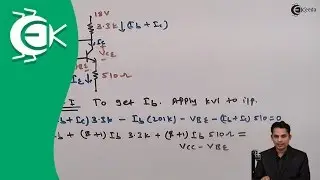 Ekeeda
18V
3.3k ↓(Ib + Ic)
↓Ic
+
VCE
-
510Ω
-I To get Ib. Apply kvl to i/p.
b + Ic) 3.3k - Ib (201k) - VBE - (Ib+Ic) 510 = 0
b + (β+1) Ib 3.3k + (β+1) Ib 510Ω =
VCC - VBE